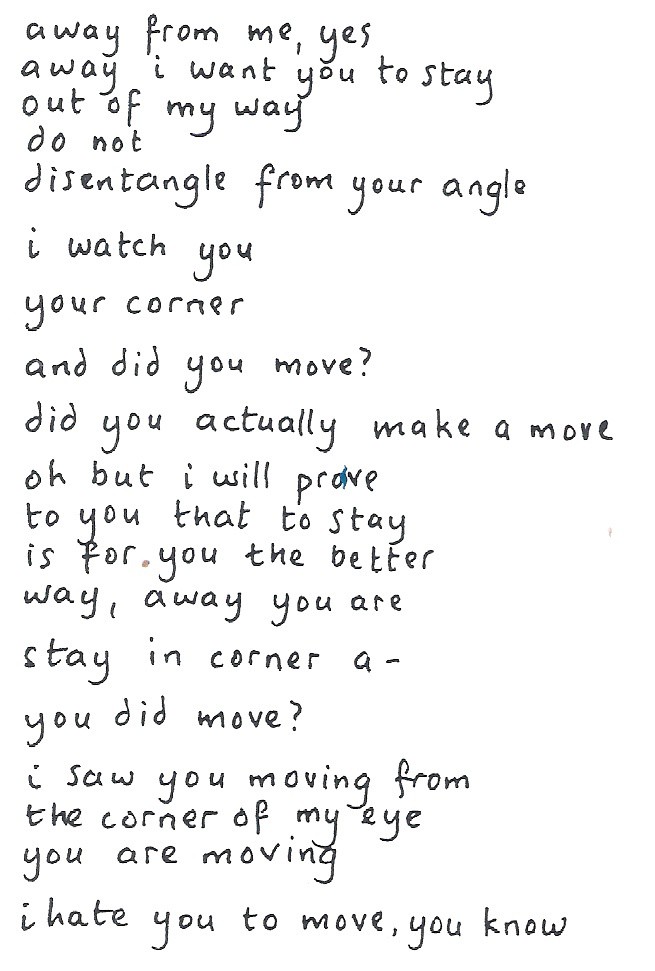 away from me, yes
away i want you to stay
out of my way
do not
disentangle from your angle
i watch you
your corner
and did you move?
did you actually make a move
oh but i will prove
to you that to stay
is for you the better
way, away you are
stay in corner a-
you did move?
i saw you moving from
the corner of my eye
you are moving
i hate you to move, you know